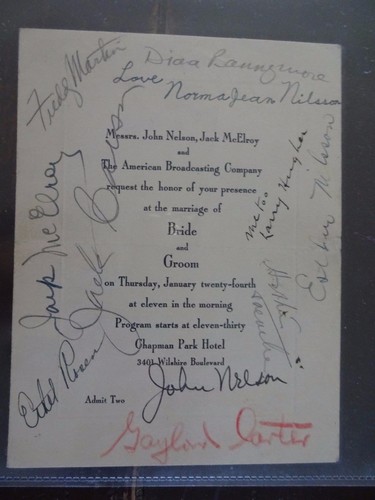 Freddy Martin
Love
Norma Jean Nilsson
Messrs. John Nelson, Jack McElroy
and
The American Broadcasting Company
request the honor of your presence
at the marriage of
Bride
and
Groom
on Thursday, January twenty-fourth
at eleven in the morning
Program starts at eleven-thirty
Chapman Park Hotel
3401 Wilshire Boulevard
Admit Two
Jack McElroy
Jack Carson
me too
John Nelson
Gaylord Carter